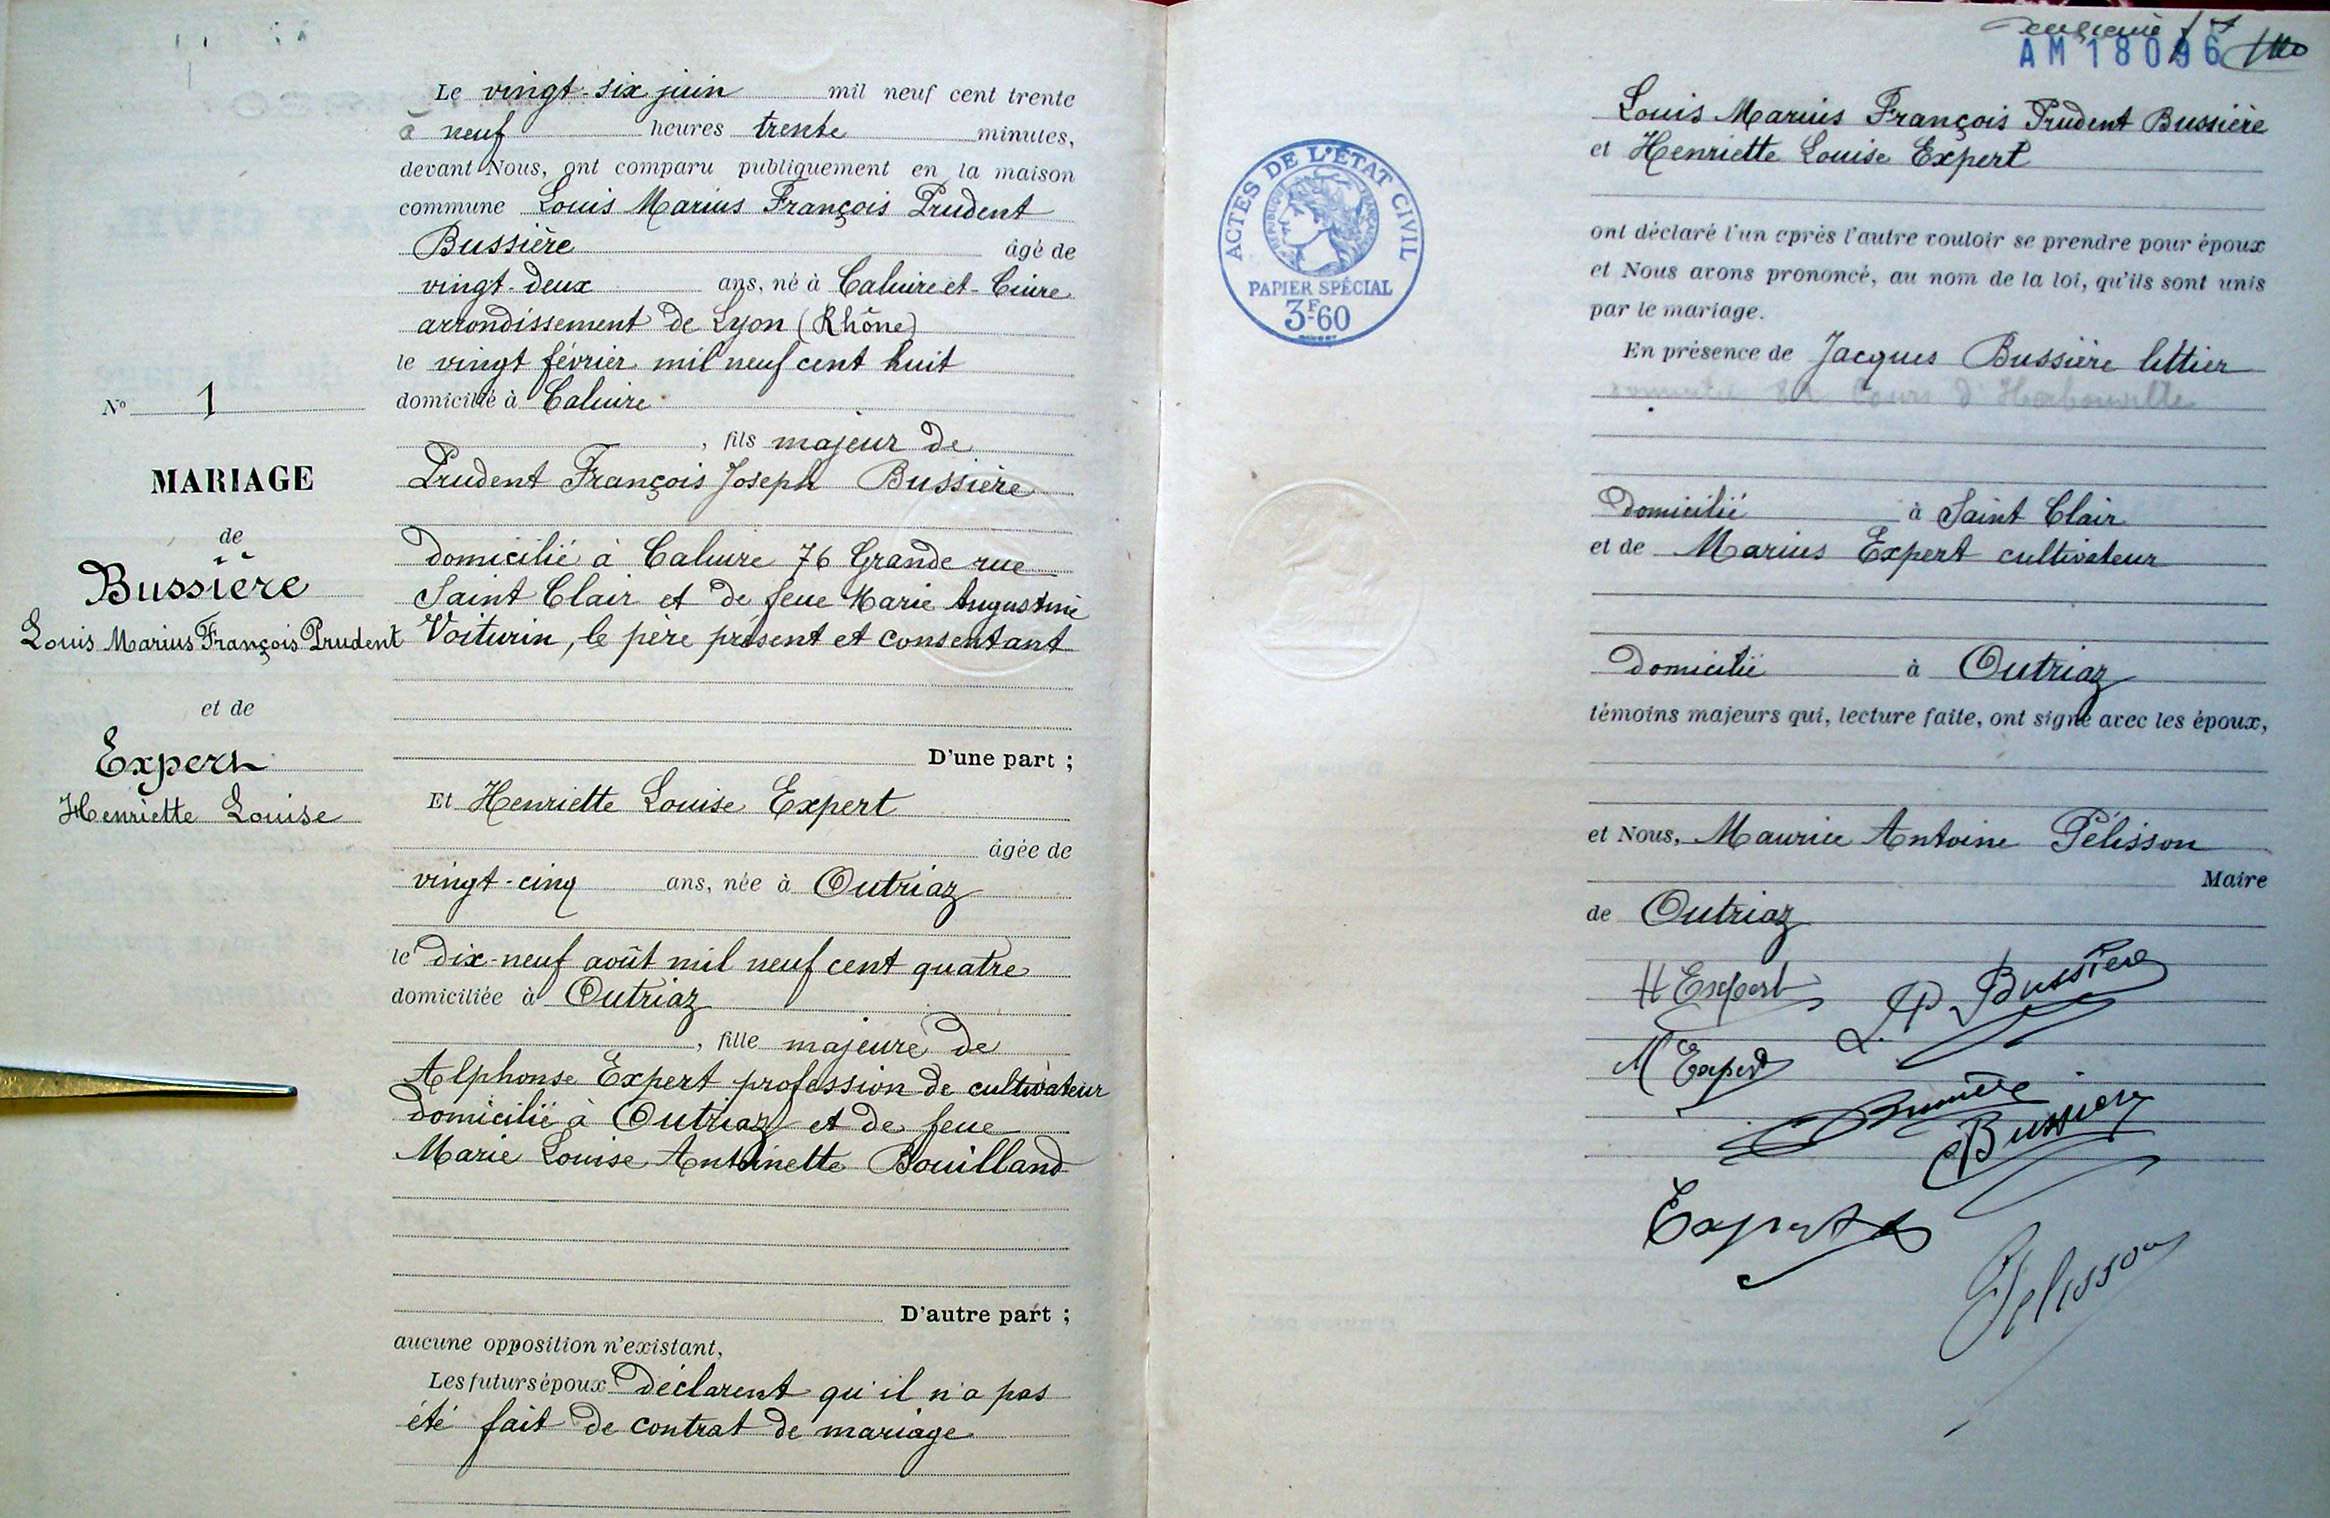 Le vingt-six juin mil neuf cent trente
à neuf heures trente minutes,
devant Nous, ont comparu publiquement en la maison
commune Louis Marius François Prudent
Bussière âgé de
vingt-deux ans, né à Caluire et-Cuire
arrondissement de Lyon (Rhône)
le vingt février mil neuf cent huit
domicilié à Caluire
, fils majeur de
Prudent François Joseph Bussière
domicilié à Caluire 76 Grande rue
Saint Clair et de feue Marie Augustine
Voiturin, le père présent et consentant
D'une part ;
Et Henriette Louise Expert
âgée de
vingt-cinq ans, née à Outriaz
le dix-neuf août mil neuf cent quatre
domiciliée à Outriaz
, fille majeure de
Alphonse Expert profession de cultivateur
domicilié à Outriaz et de feue
Marie Louise Antoinette Bouilland
D'autre part ;
aucune opposition n'existant,
Les futurs époux déclarent qu'il n'a pas
été fait de contrat de mariage
Nº 1
MARIAGE
de
Bussière
Louis Marius François Prudent
et de
Expert
Henriette Louise
AM 18096
ACTES DE L'ÉTAT CIVIL
RÉPUBLIQUE FRANÇAISE
PAPIER SPÉCIAL
3F-60
Louis Marius François Prudent Bussière
et Henriette Louise Expert
ont déclaré l'un après l'autre vouloir se prendre pour époux
et Nous avons prononcé, au nom de la loi, qu'ils sont unis
par le mariage.
En présence de Jacques Bussière
Cours d'Herbouville
Domicilié à Saint Clair
et de Marius Expert cultivateur
Domicilié à Outriaz
témoins majeurs qui, lecture faite, ont signé avec les époux,
et Nous, Maurice Antoine Pélisson
Maire
de Outriaz
H Expert
L. P. Bussière
M Expert
Bussière
Bussière
Expert
Pelisson